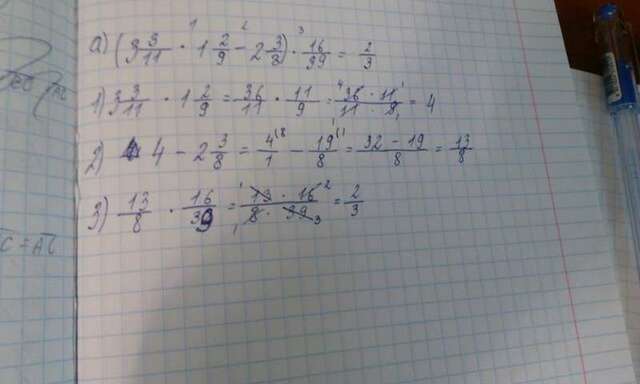 а) (3 3/11 · 1 2/9 - 2 3/8) · 16/39 = 2/3
1) 3 3/11 · 1 2/9 = 36/11 · 11/9 = 36 · 11/11 · 9 = 4
2) 4 - 2 3/8 = 4/1 - 19/8 = 32 - 19/8 = 13/8
3) 13/8 · 16/39 = 13 · 16/8 · 39 = 2/3